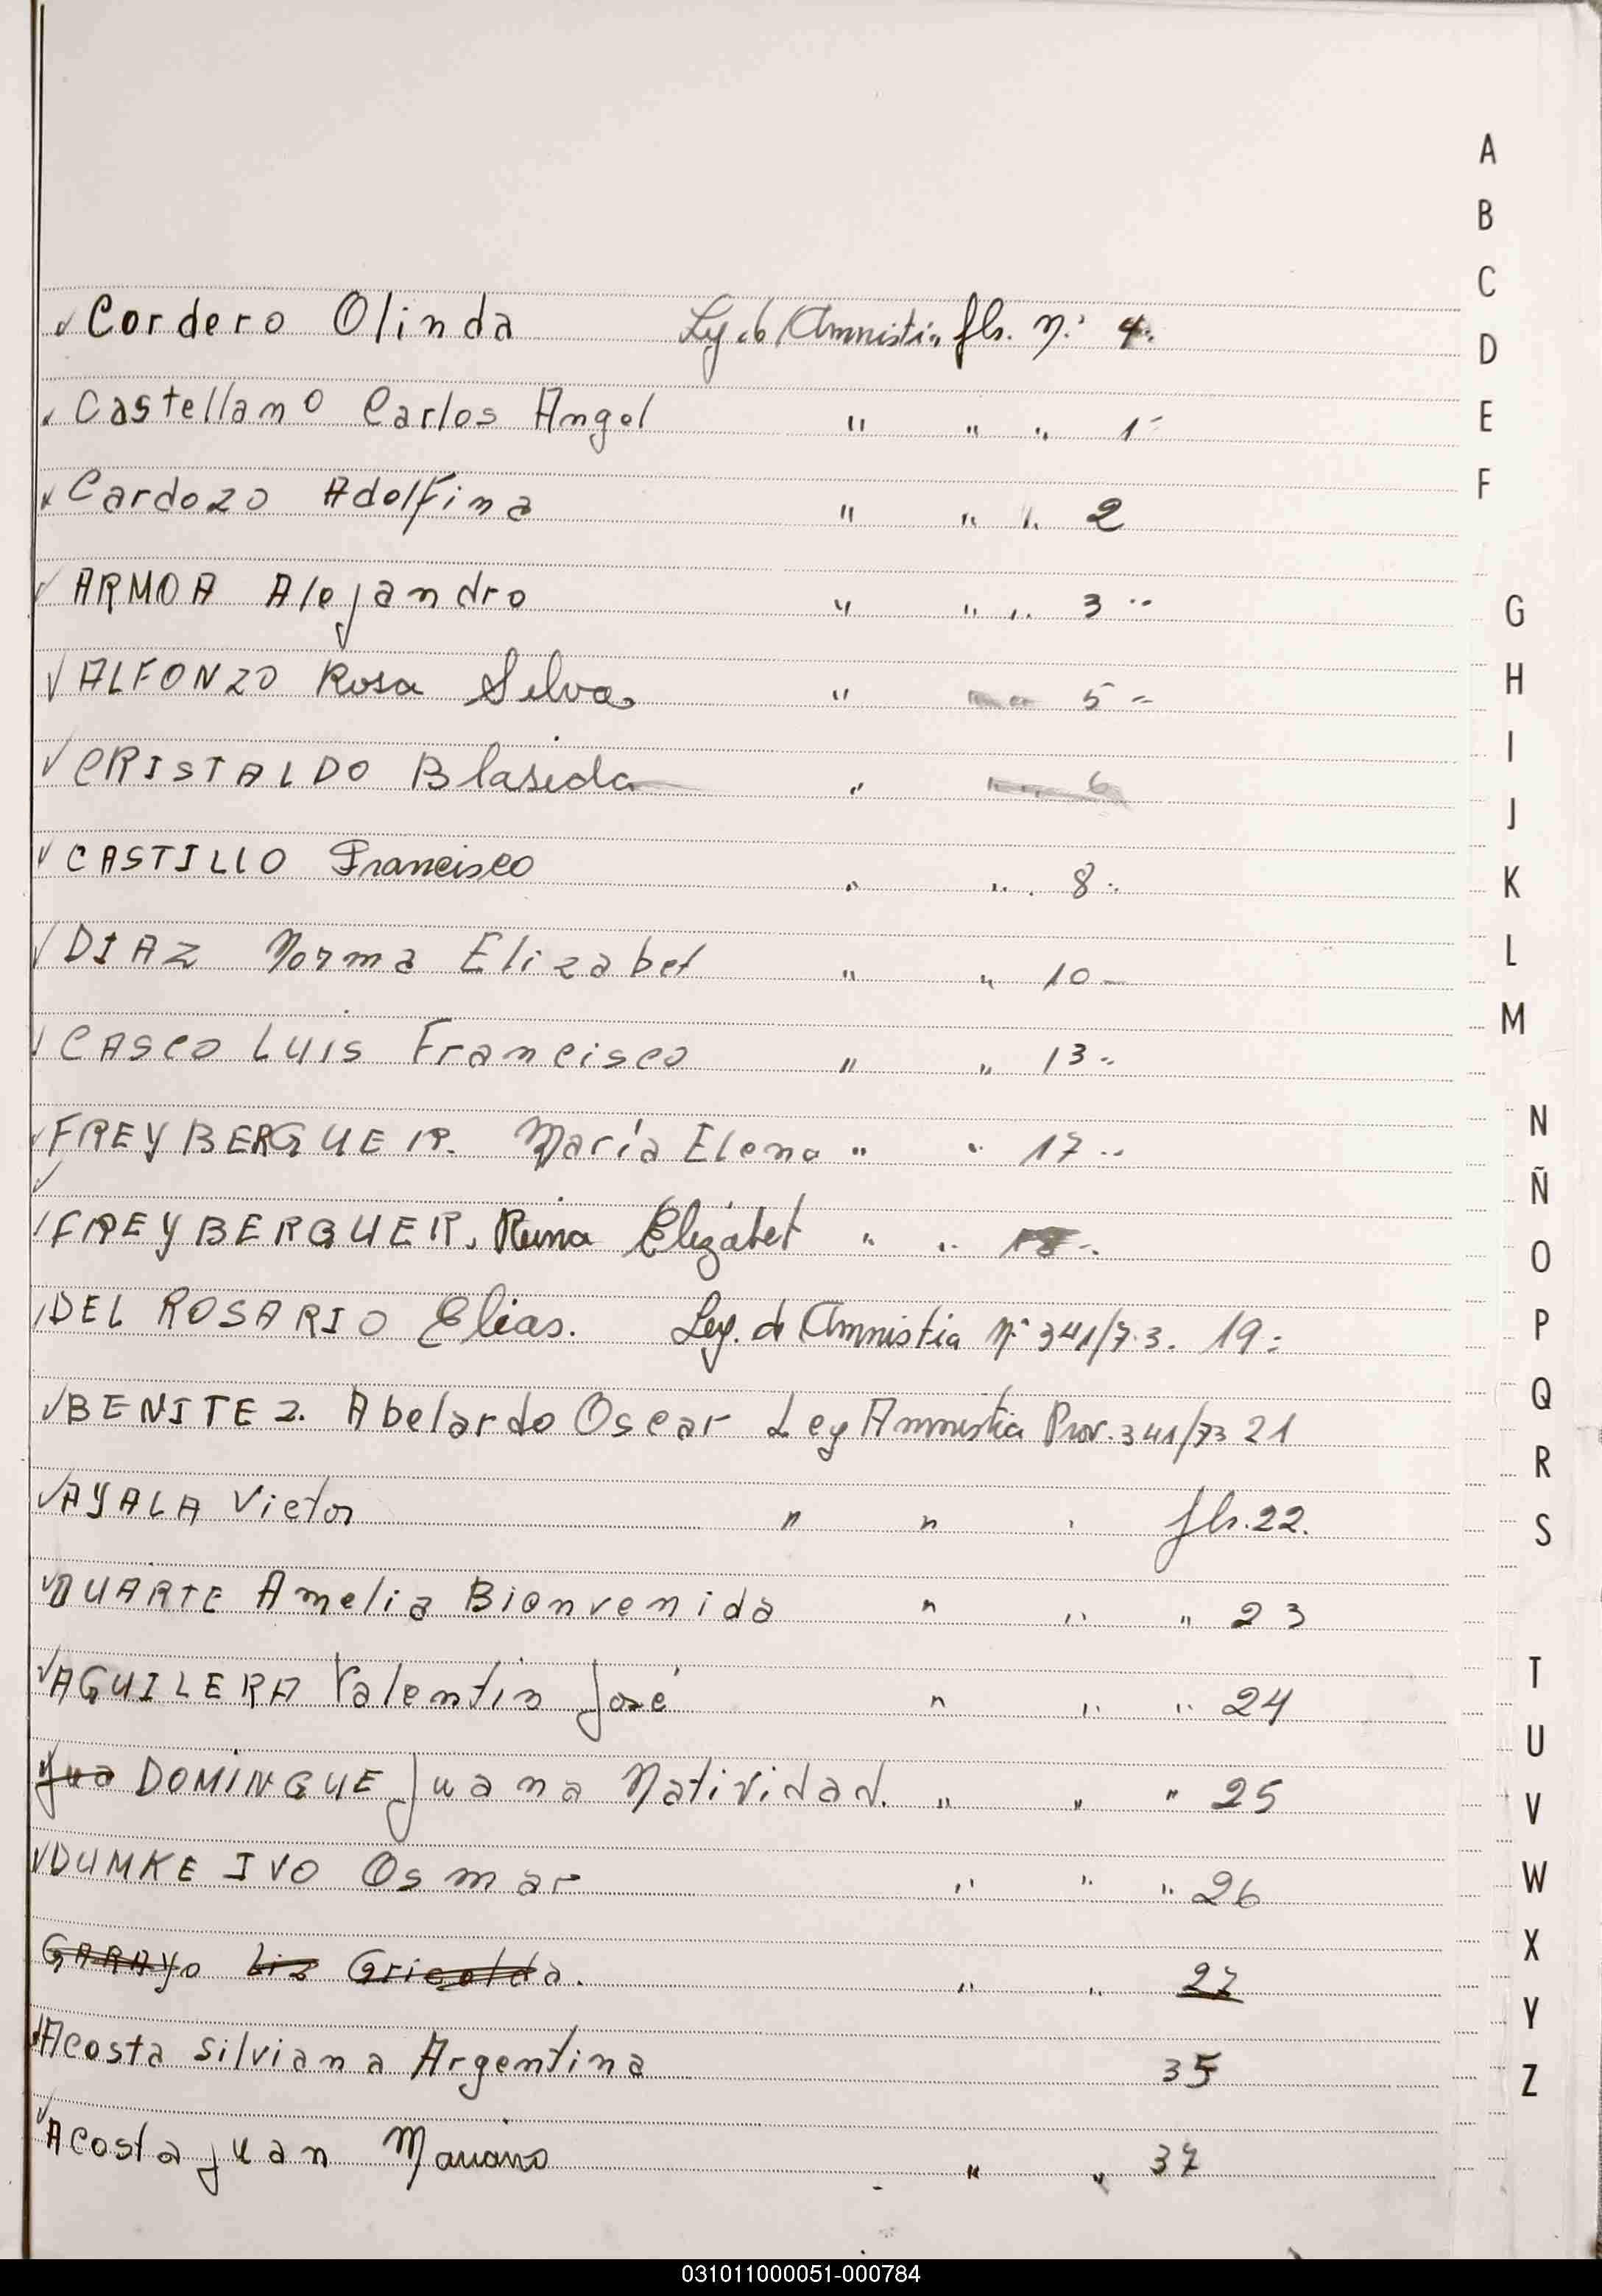 Cordero Olinda Ley de Amnistia fls. n.º 4.
Castellano Carlos Angel " " " 1-
Cardozo Adolfina " " " 2
ARMOA Alejandro " " " 3
ALFONZO Rosa Selva " 5 -
CRISTALDO Blasida " 6
CASTILLO Francisco " " . 8.
DIAZ Norma Elizabet " " 10-
CASCO LUIS Francisco " " 13-
FREYBERGUER. María Elena " " 17
FREYBERGUER. Elizabet " " 18-.
DEL ROSARIO Elias. Ley. de Amnistia n.º 341/73. 19-
BENITEZ. Abelardo Oscar Ley Amnistia Prov. 341/73 21
AYALA Victor " " " fls. 22.
DUARTE Amelia Bienvenida " " " 23
AGUILERA Valentin José " " " 24
Jua DOMINGUE Juana Natividad. " " " 25
DUMKE IVO Osmar " " " 26
GARAYo Liz Griselda. " " 27
Acosta silviana Argentina 35
Acosta juan Mariano " " 37
A
B
C
D
E
F
G
H
I
J
K
L
M
N
Ñ
O
P
Q
R
S
T
U
V
W
X
Y
Z
031011000051-000784